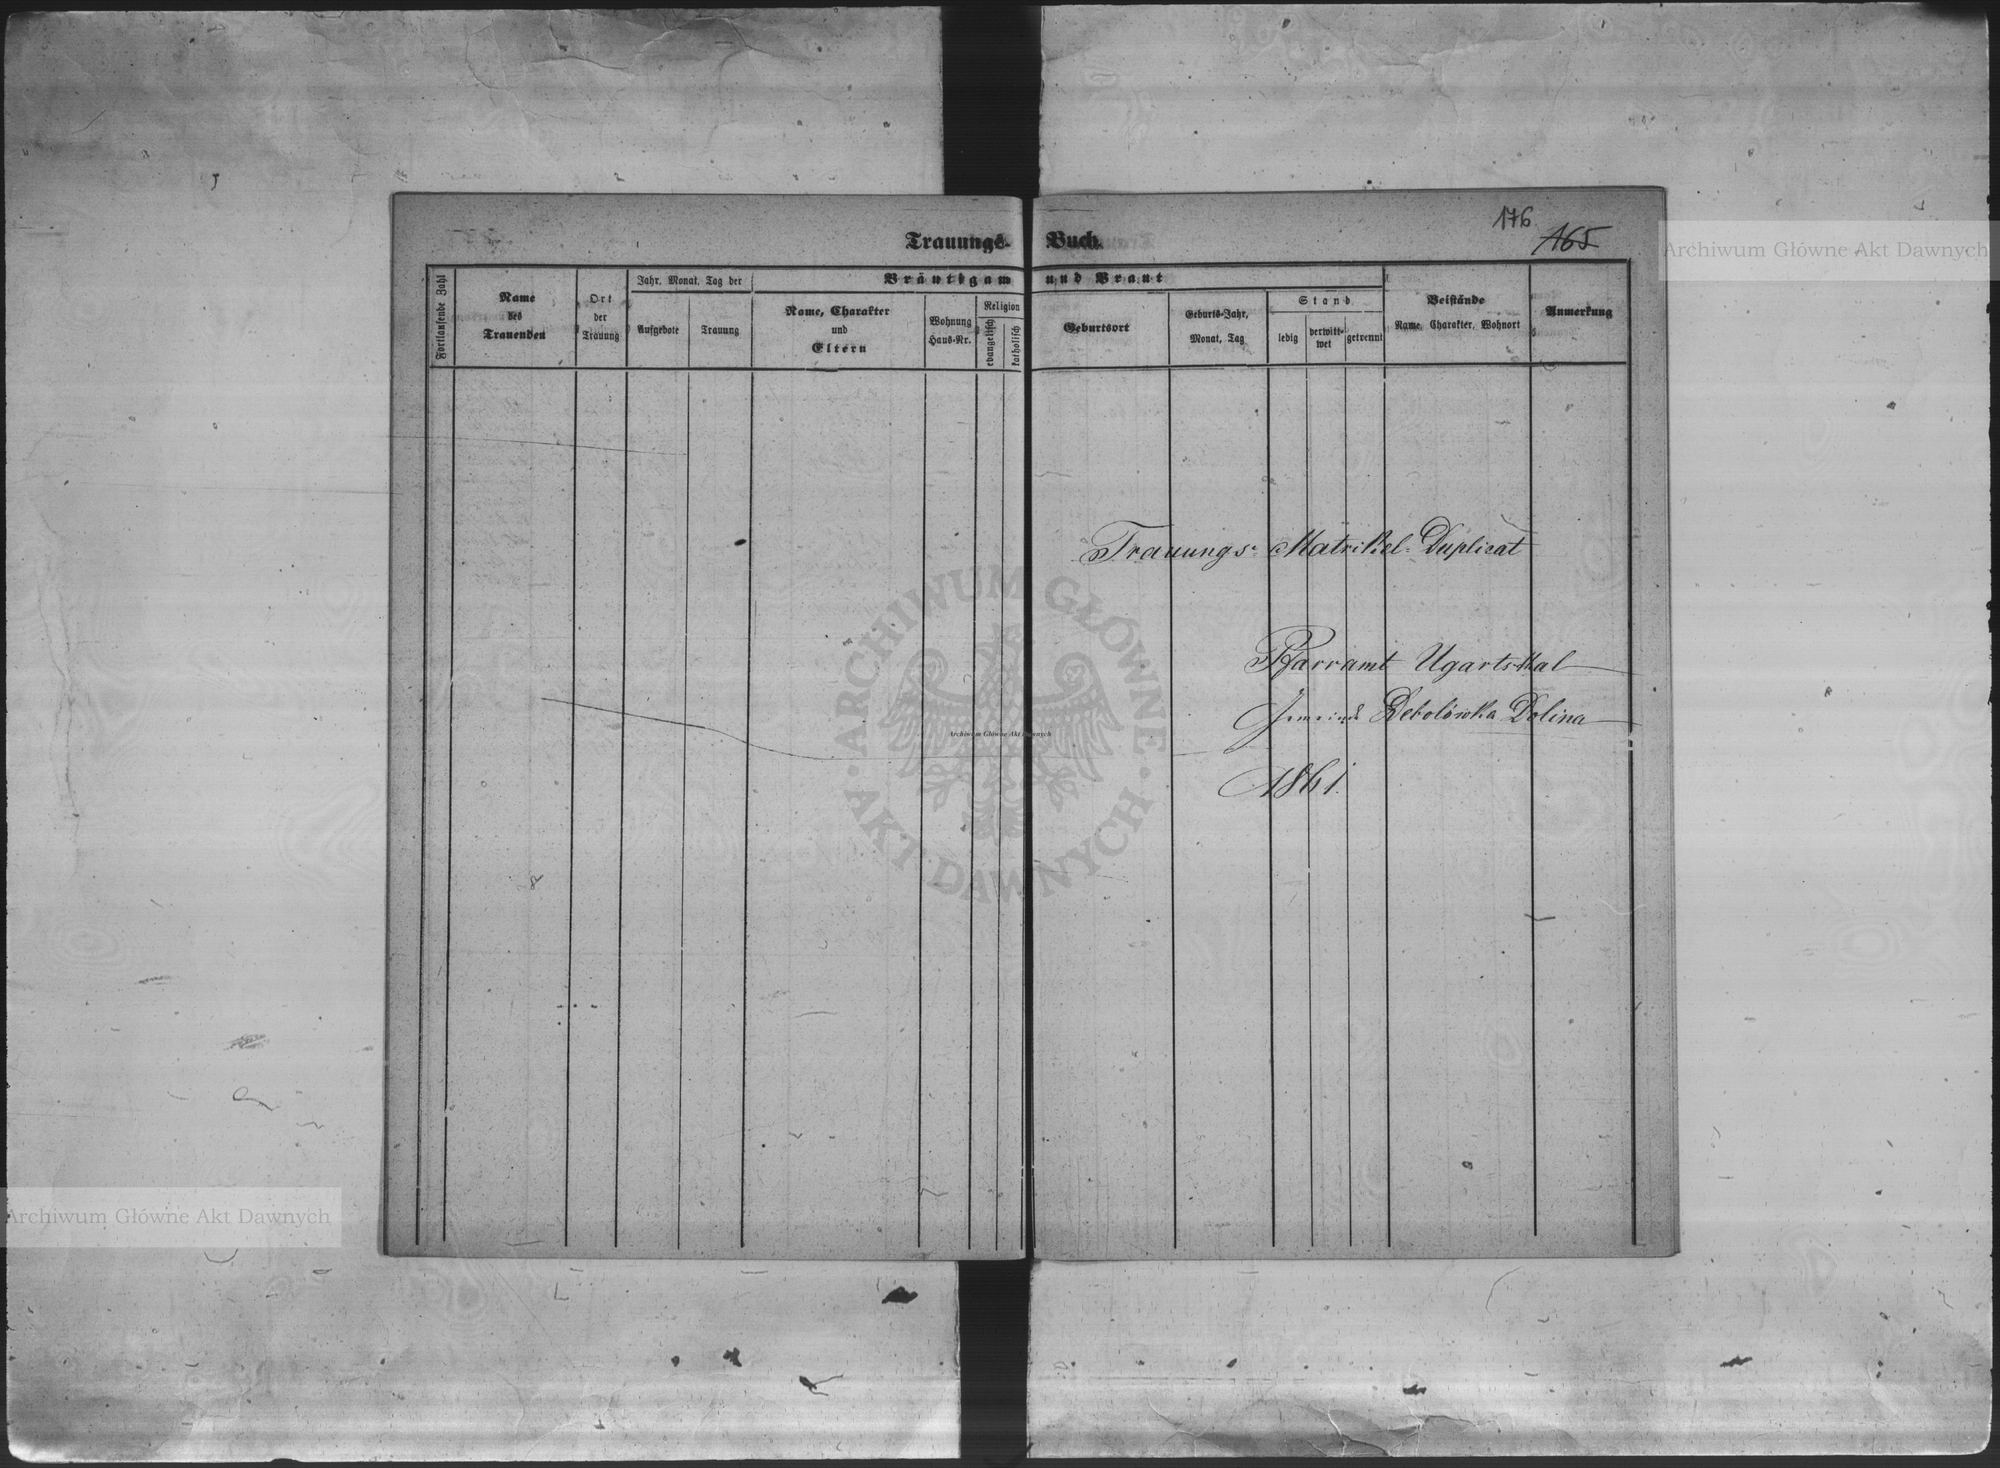 176
165
Trauungs- Buch.
Fortlaufende Zahl
Name des Trauenden
Ort der Trauung
Jahr, Monat, Tag der
Aufgebote
Trauung
Bräutigam und Braut
Name, Charakter und Eltern
Wohnung Haus-Nr.
Religion
evangelisch
katholisch
Geburtsort
Geburts-Jahr, Monat, Tag
Stand
ledig
verwittwet
getrennt
Beistände
Name, Charakter, Wohnort
Anmerkung
Trauungs- Matrikel- Duplicat
Pfarramt Ugartsthal
Gemeinde Debolówka Dolina
1861.
Archiwum Główne Akt Dawnych
ARCHIWUM GŁÓWNE
AKT DAWNYCH
Archiwum Główne Akt Dawnych
Archiwum Główne Akt Dawnych